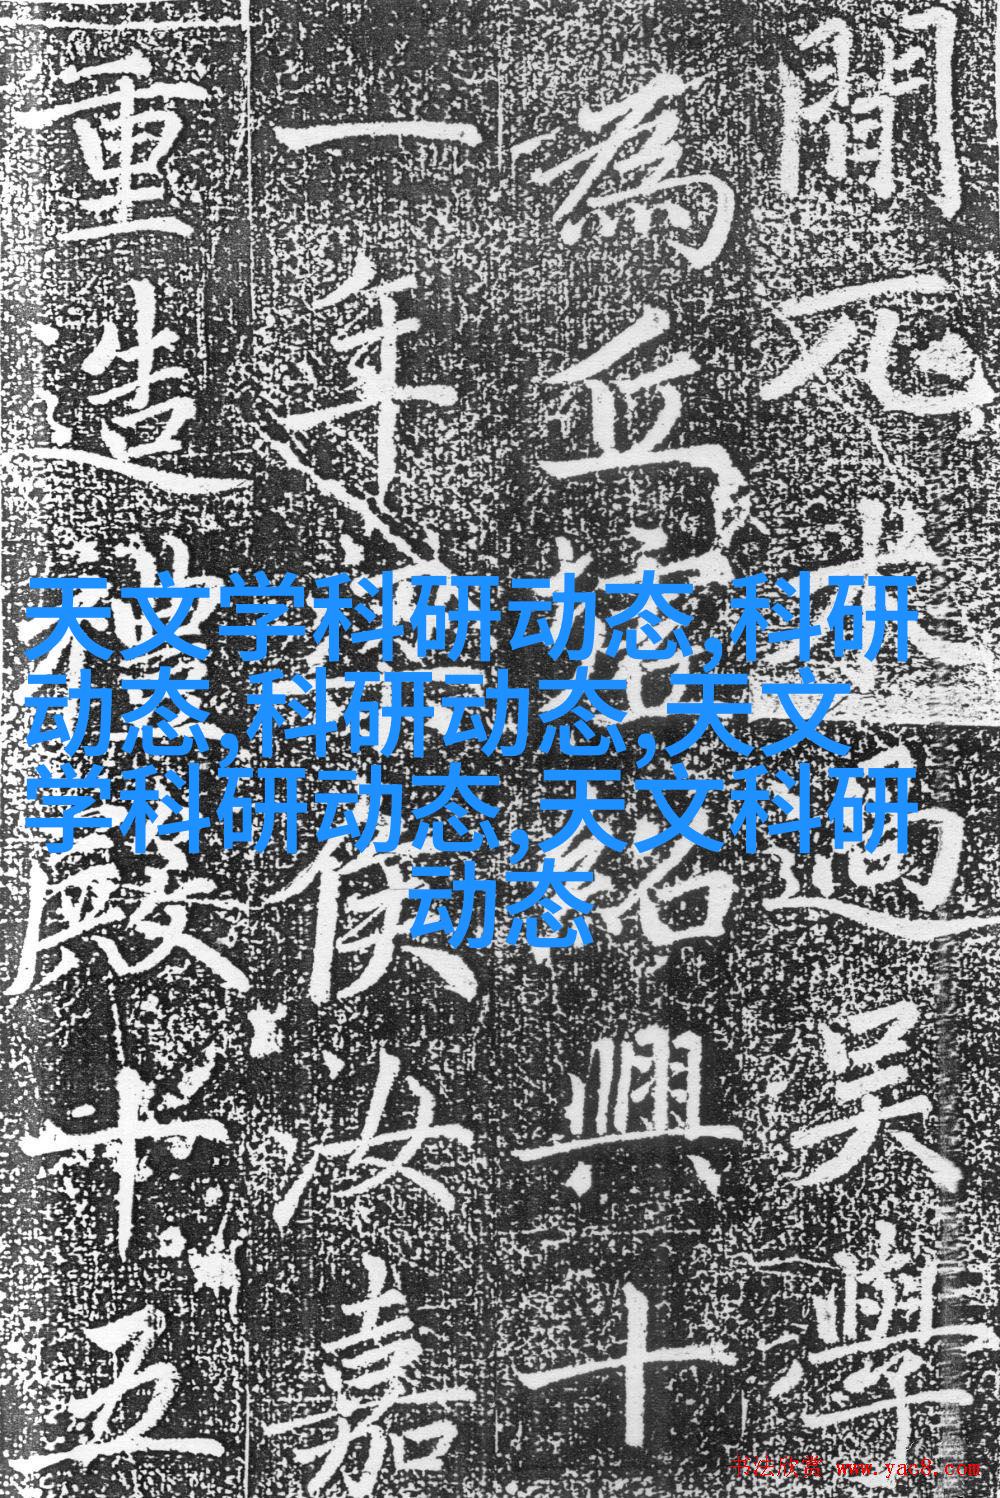 間元過吳學
為丘紹興十
一年侯汝嘉
重造禮殿十五
天文学科研动态,科研
动态,科研动态,天文
学科研动态,天文科研
动态
书法欣赏 www.yac8.com